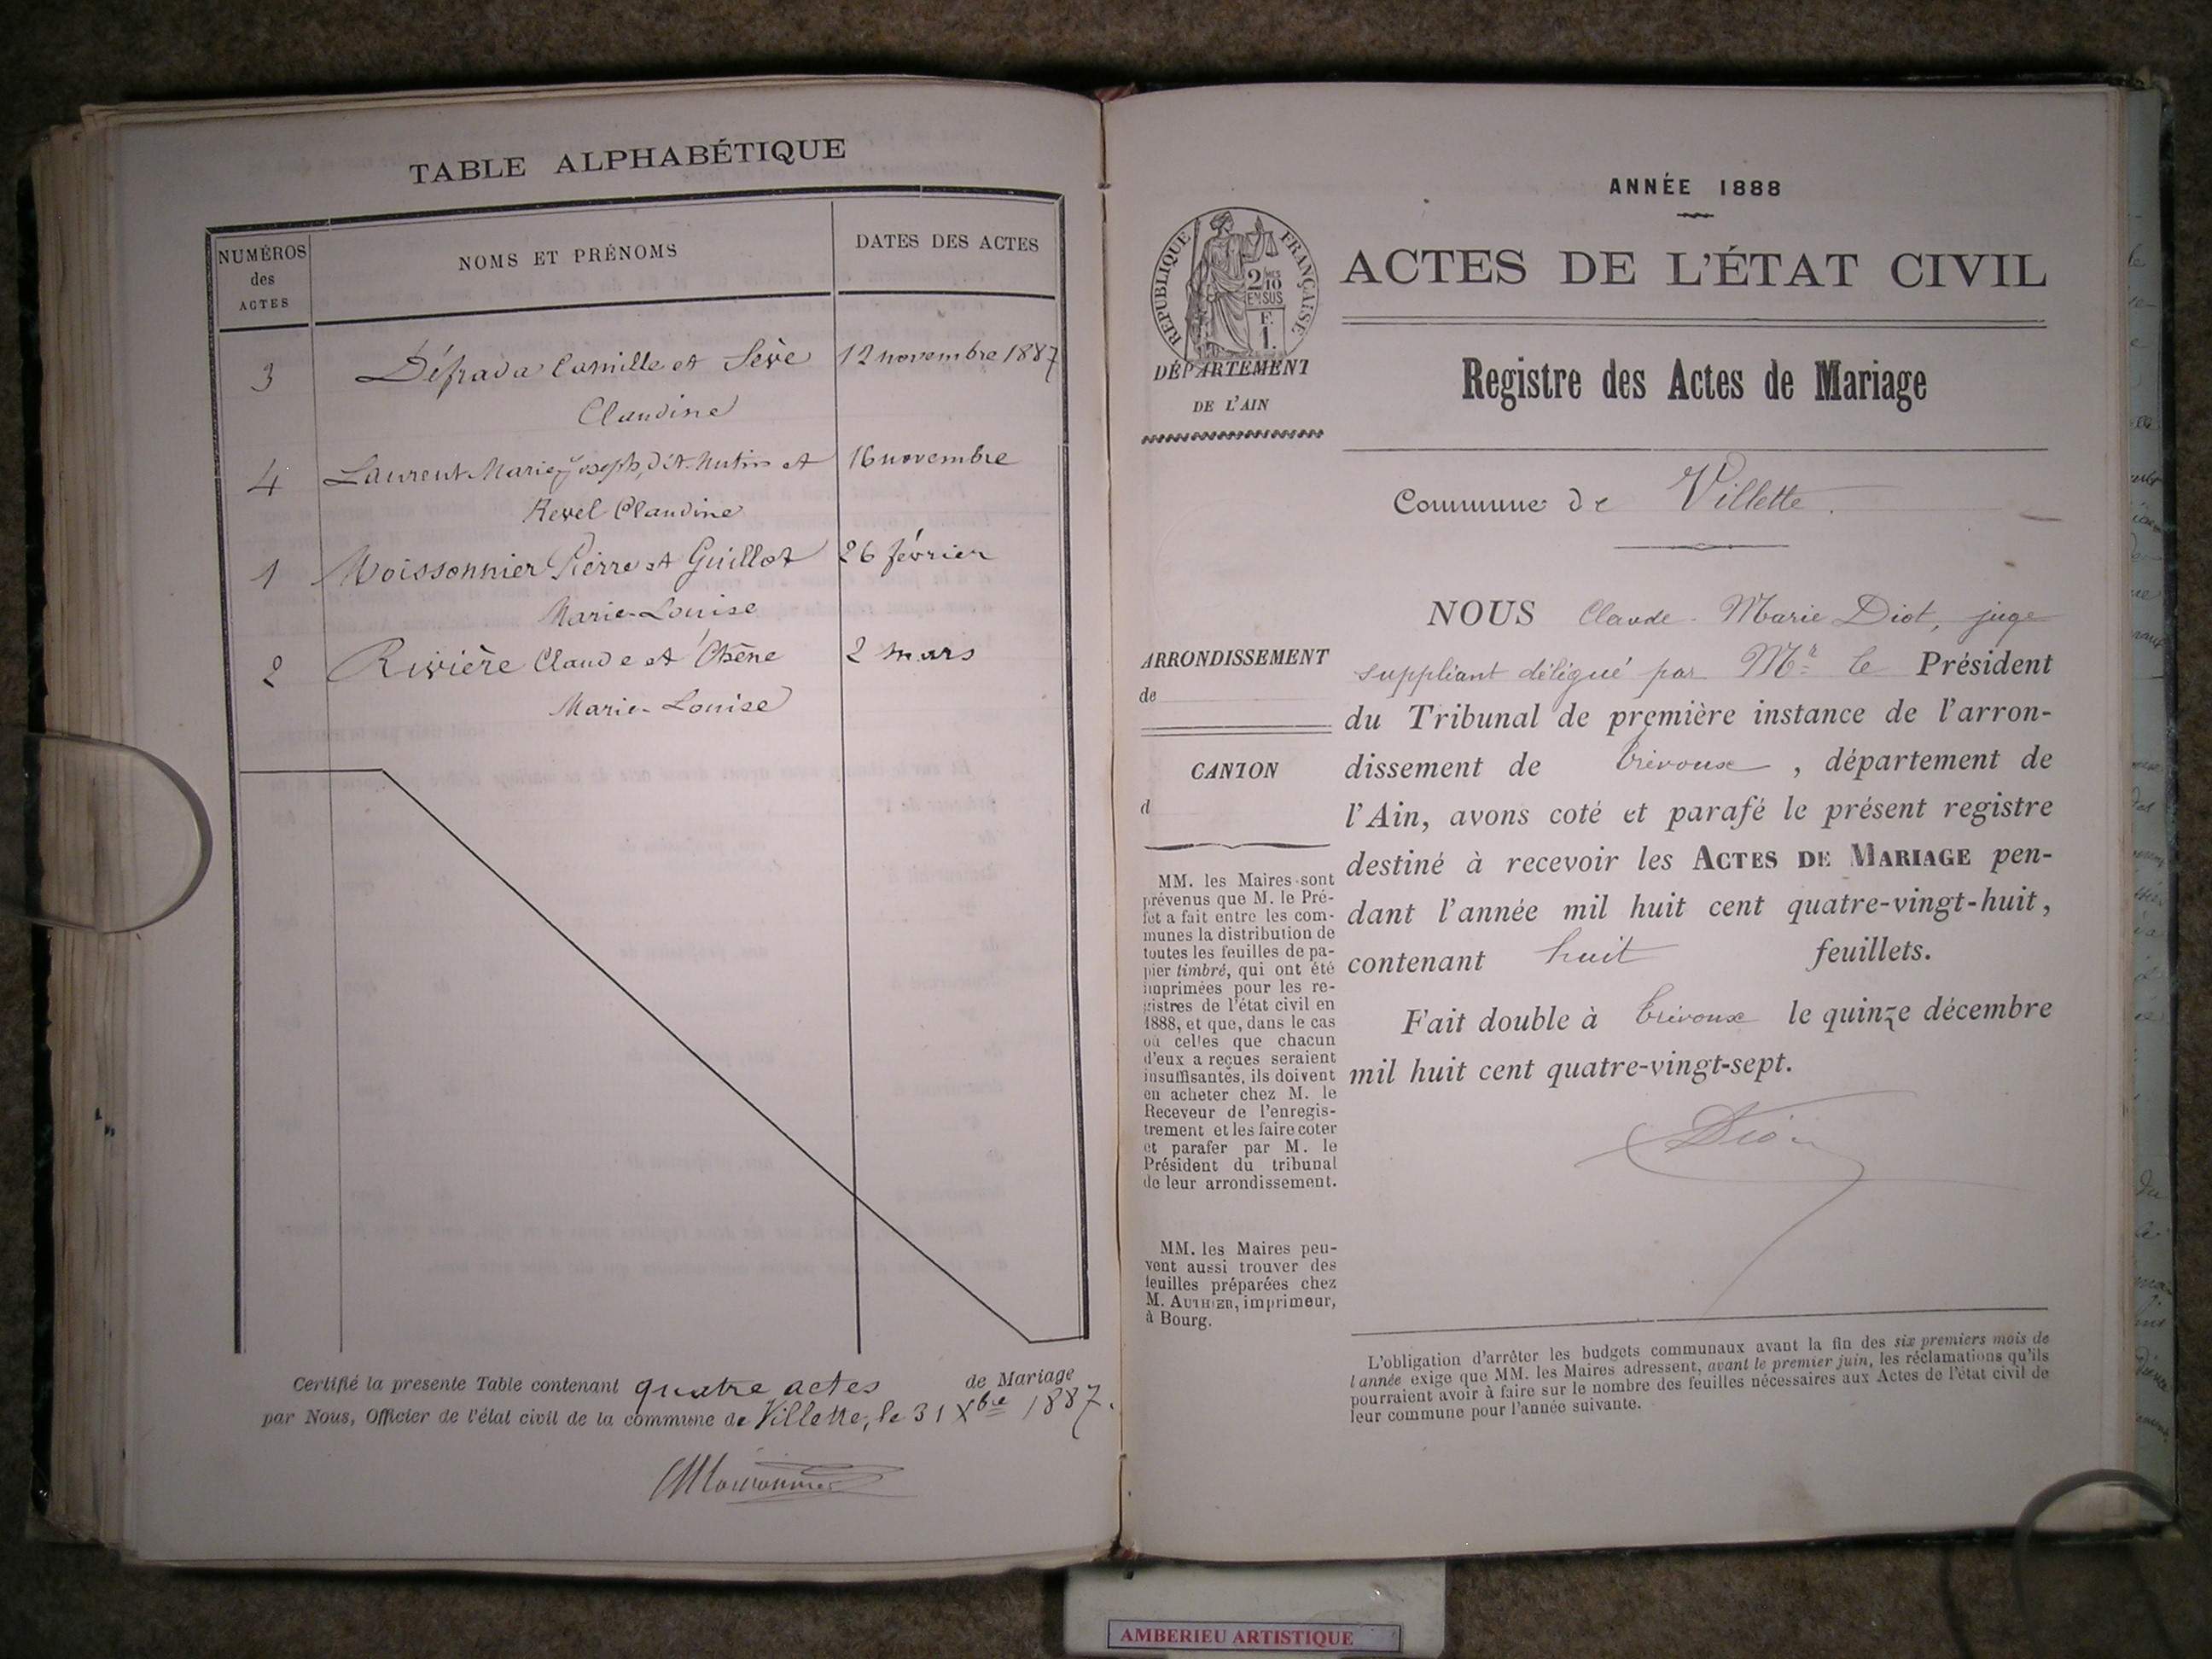 TABLE ALPHABÉTIQUE
NUMÉROS
des
ACTES
NOMS ET PRÉNOMS
DATES DES ACTES
3 Défrada Camille et Sève 12 novembre 1887
Claudine
4 Laurent Marie Joseph, dit Mutin et 16 novembre
Revel Claudine
1 Moissonnier Pierre et Guillot 26 février
Marie-Louise
2 Rivière Claude et Chêne 2 mars
Marie-Louise
Certifié la presente Table contenant quatre actes de Mariage
par Nous, Officier de l'état civil de la commune de Villette, le 31 Xbre 1887.
ANNÉE 1888
RÉPUBLIQUE FRANÇAISE
2/10MES
EN SUS
F.
1.
ACTES DE L'ÉTAT CIVIL
DÉPARTEMENT
DE L'AIN
Registre des Actes de Mariage
Commune de Villette.
ARRONDISSEMENT
de
CANTON
d
MM. les Maires sont
prévenus que M. le Pré-
fet a fait entre les com-
munes la distribution de
toutes les feuilles de pa-
pier timbré, qui ont été
imprimées pour les re-
gistres de l'état civil en
1888, et que, dans le cas
où celles que chacun
d'eux a reçues seraient
insuffisantes, ils doivent
en acheter chez M. le
Receveur de l'enregis-
trement et les faire coter
et parafer par M. le
Président du tribunal
de leur arrondissement.
MM. les Maires peu-
vent aussi trouver des
feuilles préparées chez
M. AUTHIER, imprimeur,
à Bourg.
NOUS Claude-Marie Diot, juge
suppléant délégué par Mr le Président
du Tribunal de première instance de l'arron-
dissement de Trévoux, département de
l'Ain, avons coté et parafé le présent registre
destiné à recevoir les ACTES DE MARIAGE pen-
dant l'année mil huit cent quatre-vingt-huit,
contenant huit feuillets.
Fait double à Trévoux le quinze décembre
mil huit cent quatre-vingt-sept.
Diot
L'obligation d'arrêter les budgets communaux avant la fin des six premiers mois de
l'année exige que MM. les Maires adressent, avant le premier juin, les réclamations qu'ils
pourraient avoir à faire sur le nombre des feuilles nécessaires aux Actes de l'état civil de
leur commune pour l'année suivante.
AMBERIEU ARTISTIQUE